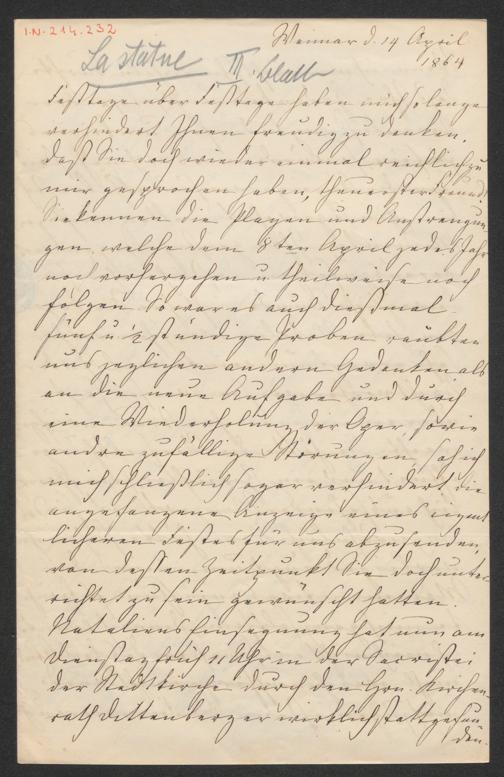 I.N. 214.232
Weimar d. 14 April
1864
La statue III. Blatt
Festtage über Festtage haben mich so lange
verhindert Ihnen freudig zu danken,
daß Sie doch wieder einmal reichlich zu
mir gesprochen haben, theuerster Freund!
Sie kennen die Plagen und Anstrengun-
gen, welche dem 8ten April jedes Jahr
noch vorhergehen u theilweise noch
folgen. So war es auch dießmal.
fünf u ½ stündige Proben raubten
uns jeglichen andern Gedanken als
an die neue Aufgabe und durch
eine Wiederholung der Oper, sowie
andre zufällige Störungen, sah ich
mich schließlich sogar verhindert die
angefangene Anzeige eines eigent-
licheren Festes für uns abzusenden,
von dessen Zeitpunkt Sie doch unter-
richtet zu sein gewünscht hatten.
Nataliens Einsegnung hat nun am
Dienstag früh 11 Uhr in der Sacristei
der Stadtkirche durch den Hrn. Kirchen-
rath Dittenberger wirklich stattgefun-
den.